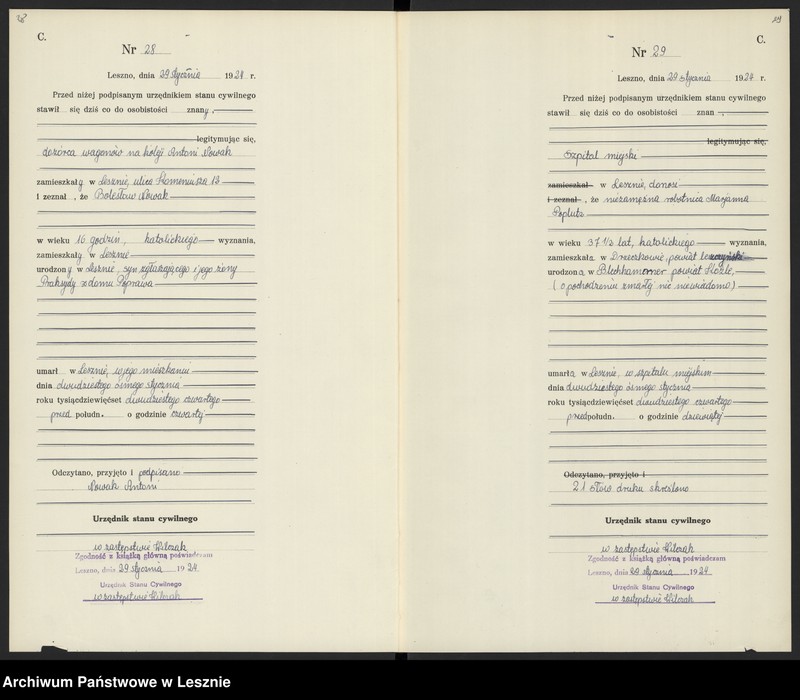 28
C.
Nr 28
Leszno, dnia 29 stycznia 1924 r.
Przed niżej podpisanym urzędnikiem stanu cywilnego
stawił się dziś co do osobistości znany,
legitymując się,
dozorca wagonów na kolęji Antoni Nowak
zamieszkały w Lesznie, ulica Komeniusza 13
i zeznał, że Bolesław Nowak
w wieku 16 godzin, katolickiego wyznania,
zamieszkały w Lesznie
urodzony w Lesznie, syn zgłaszającego i jego żony
Praksydy z domu Poprawa
umarł w Lesznie, w jego mieszkaniu
dnia dwudziestego ósmego stycznia
roku tysiącdziewięćset dwudziestego czwartego
przed połudn. o godzinie czwartej
Odczytano, przyjęto i podpisano
Nowak Antoni
Urzędnik stanu cywilnego
w zastępstwie Witczak
Zgodność z książką główną poświadczam
Leszno, dnia 29 stycznia 1924
Urzędnik Stanu Cywilnego
w zastępstwie Witczak
29
C.
Nr 29
Leszno, dnia 29 stycznia 1924 r.
Przed niżej podpisanym urzędnikiem stanu cywilnego
stawił się dziś co do osobistości znan
legitymując się,
Szpital miejski
zamieszkał w Lesznie, donosi
i zeznał, że niezamężna robotnica Maryanna
Poplutz
w wieku 37 1/2 lat, katolickiego wyznania,
zamieszkała w Drzeczkowie, powiat leszczyński
urodzona w Blechhammer powiat Kozle,
(o pochodzeniu zmarłej nic niewiadomo)
umarła w Lesznie, w szpitalu miejskim
dnia dwudziestego ósmego stycznia
roku tysiącdziewięćset dwudziestego czwartego
przed połudn. o godzinie dziewiątej
Odczytano, przyjęto i
21 słów druku skreślono
Urzędnik stanu cywilnego
w zastępstwie Witczak
Zgodność z książką główną poświadczam
Leszno, dnia 29 stycznia 1924
Urzędnik Stanu Cywilnego
w zastępstwie Witczak
Archiwum Państwowe w Lesznie